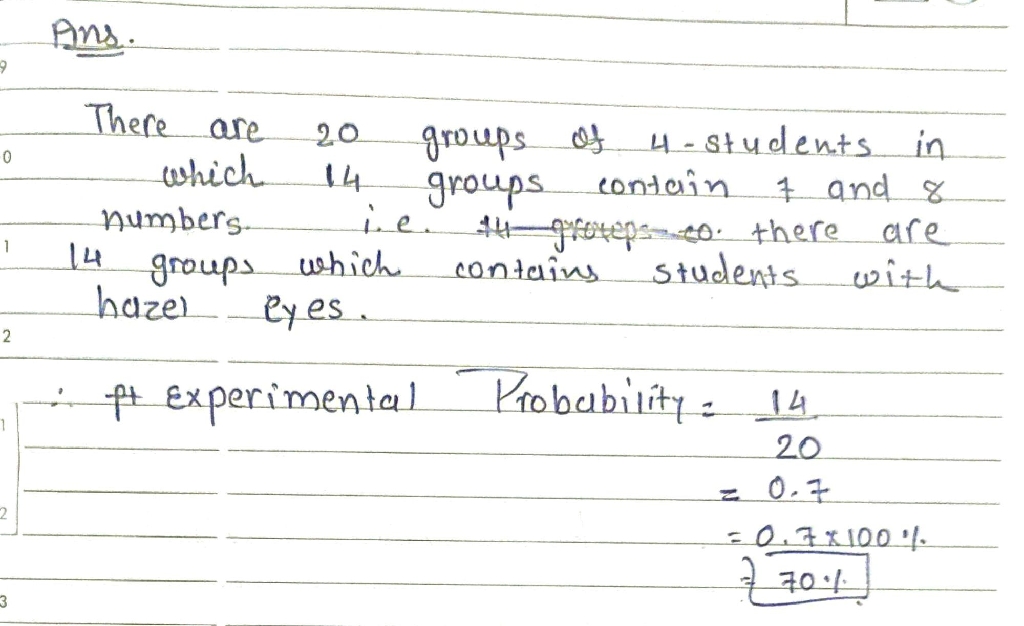 Ans.
9
There are 20 groups of 4-students in
0
which 14 groups contain 7 and 8
numbers. i.e. 14 groups co. there are
1
14 groups which contains students with
hazel eyes.
2
∴ pt Experimental Probability = 14
1
20
= 0.7
2
= 0.7 x 100 %
= 70 %
3